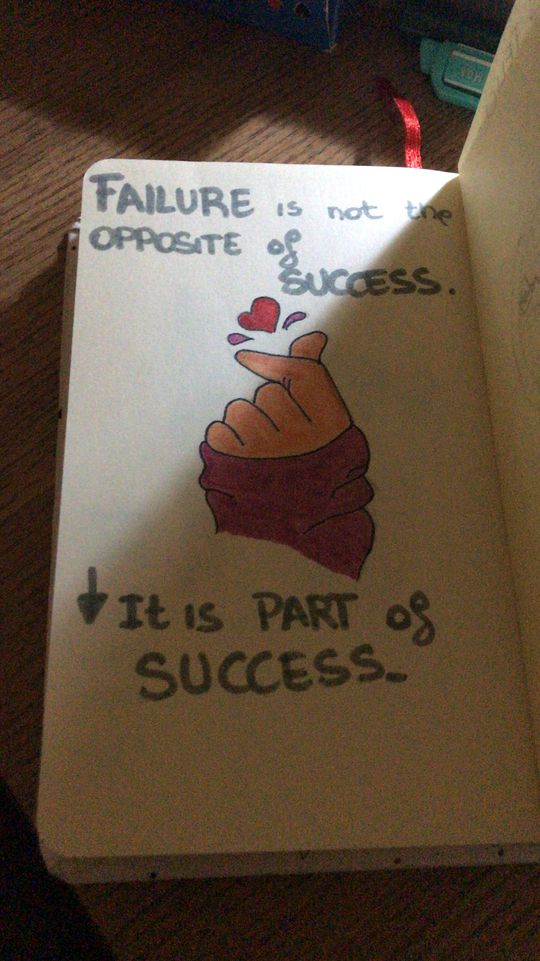 FAILURE is not the
OPPOSITE of
SUCCESS.
It is PART of
SUCCESS_